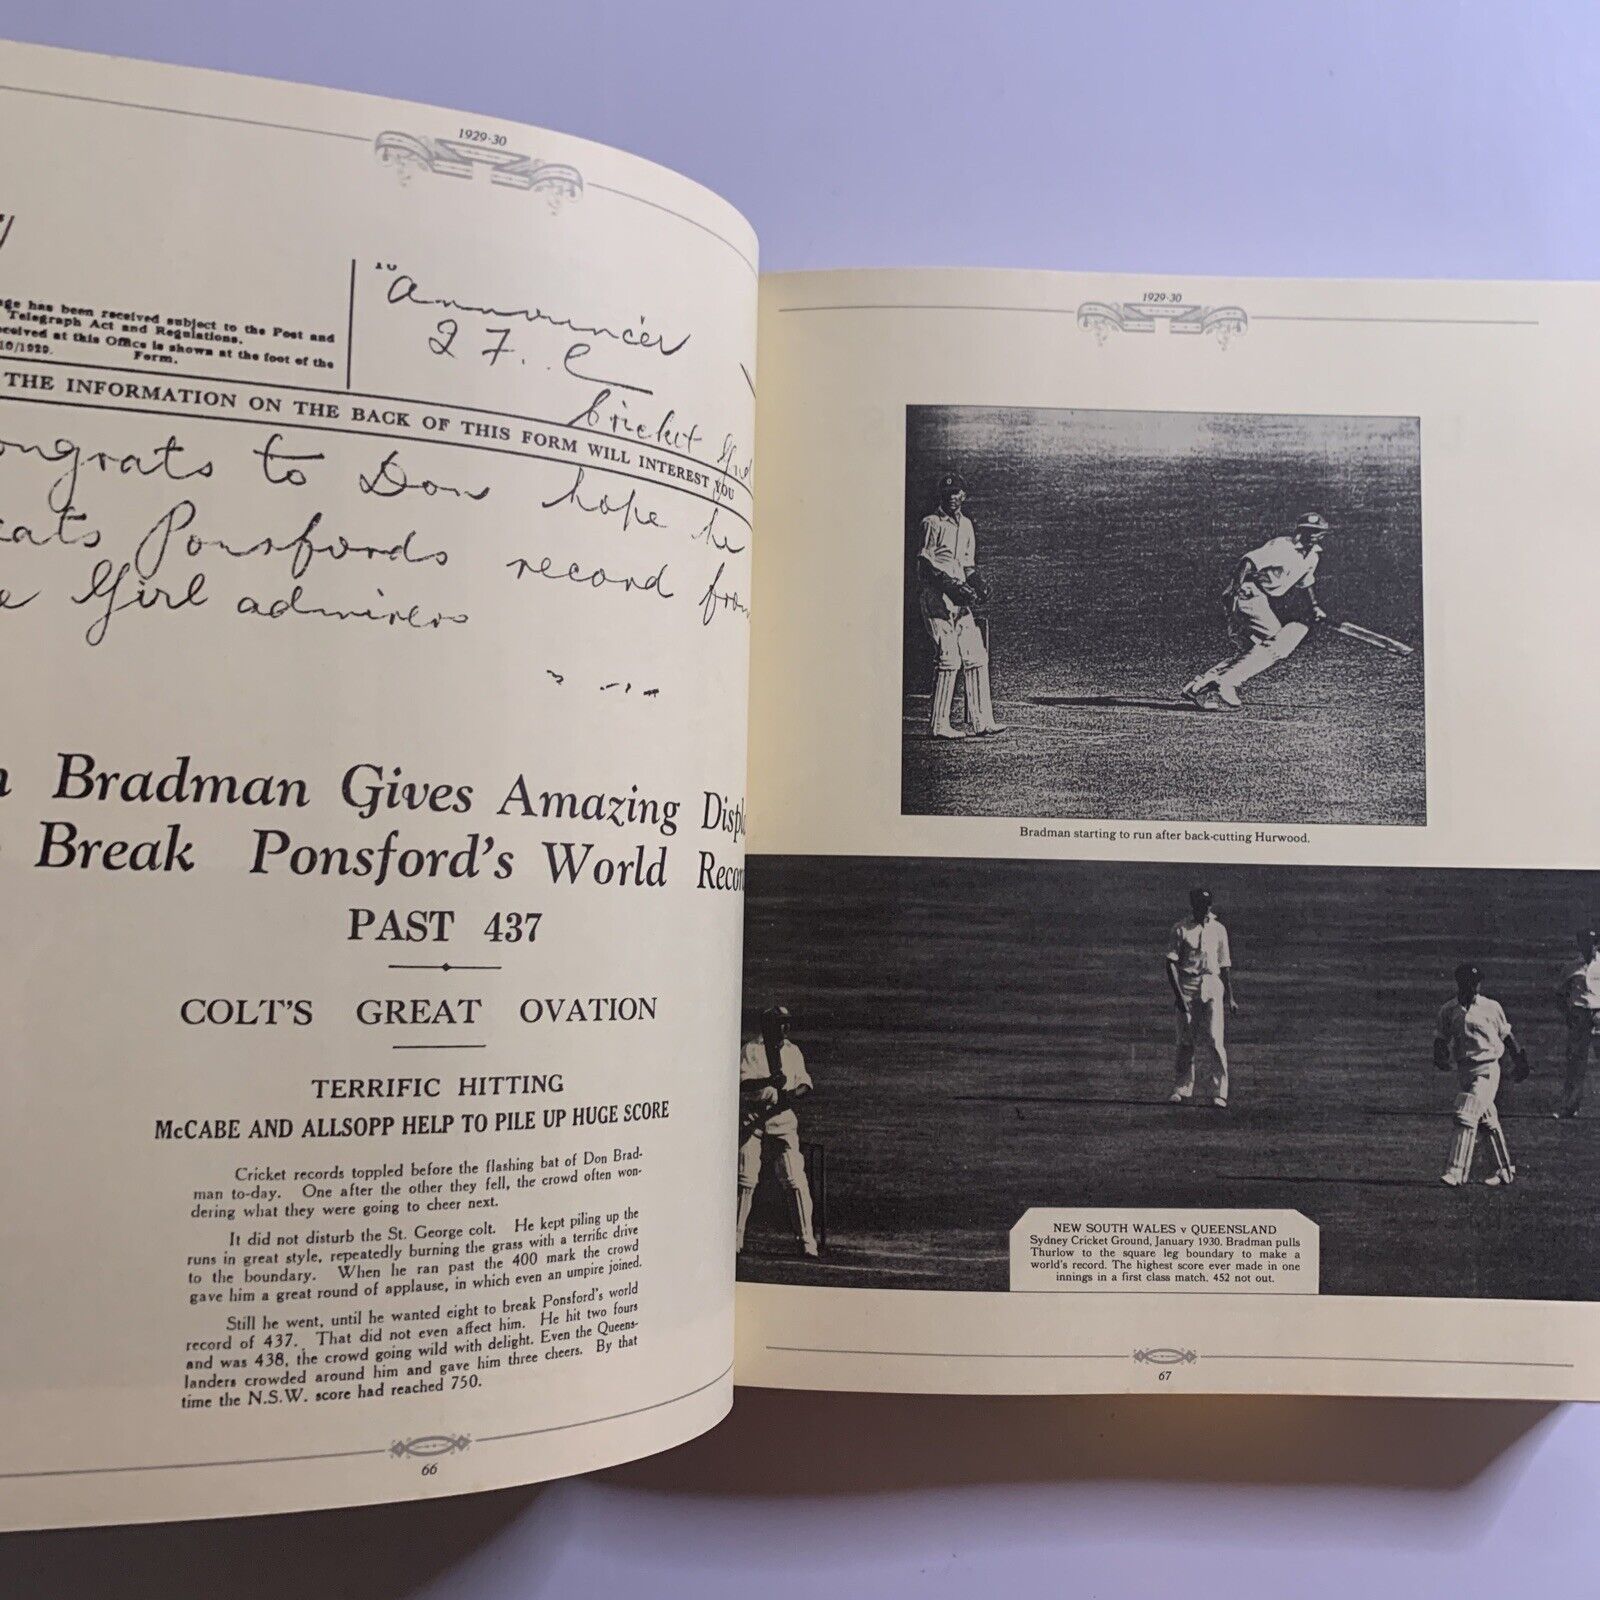 1929-30
10
Announcer
27. C
Cricket
has been received subject to the Post and
Telegraph Act and Regulations.
at this Office is shown at the foot of the
10/1929. Form.
THE INFORMATION ON THE BACK OF THIS FORM WILL INTEREST YOU
ongrats to Don hope he
eats Ponsfords record from
Girl admirers
Bradman Gives Amazing Displ
Break Ponsford's World Recor
PAST 437
COLT'S GREAT OVATION
TERRIFIC HITTING
McCABE AND ALLSOPP HELP TO PILE UP HUGE SCORE
Cricket records toppled before the flashing bat of Don Brad-
man to-day. One after the other they fell, the crowd often won-
dering what they were going to cheer next.
It did not disturb the St. George colt. He kept piling up the
runs in great style, repeatedly burning the grass with a terrific drive
to the boundary. When he ran past the 400 mark the crowd
gave him a great round of applause, in which even an umpire joined.
Still he went, until he wanted eight to break Ponsford's world
record of 437. That did not even affect him. He hit two fours
and was 438, the crowd going wild with delight. Even the Queens-
landers crowded around him and gave him three cheers. By that
time the N.S.W. score had reached 750.
66
1929-30
Bradman starting to run after back-cutting Hurwood.
NEW SOUTH WALES v QUEENSLAND
Sydney Cricket Ground, January 1930. Bradman pulls
Thurlow to the square leg boundary to make a
world's record. The highest score ever made in one
innings in a first class match. 452 not out.
67